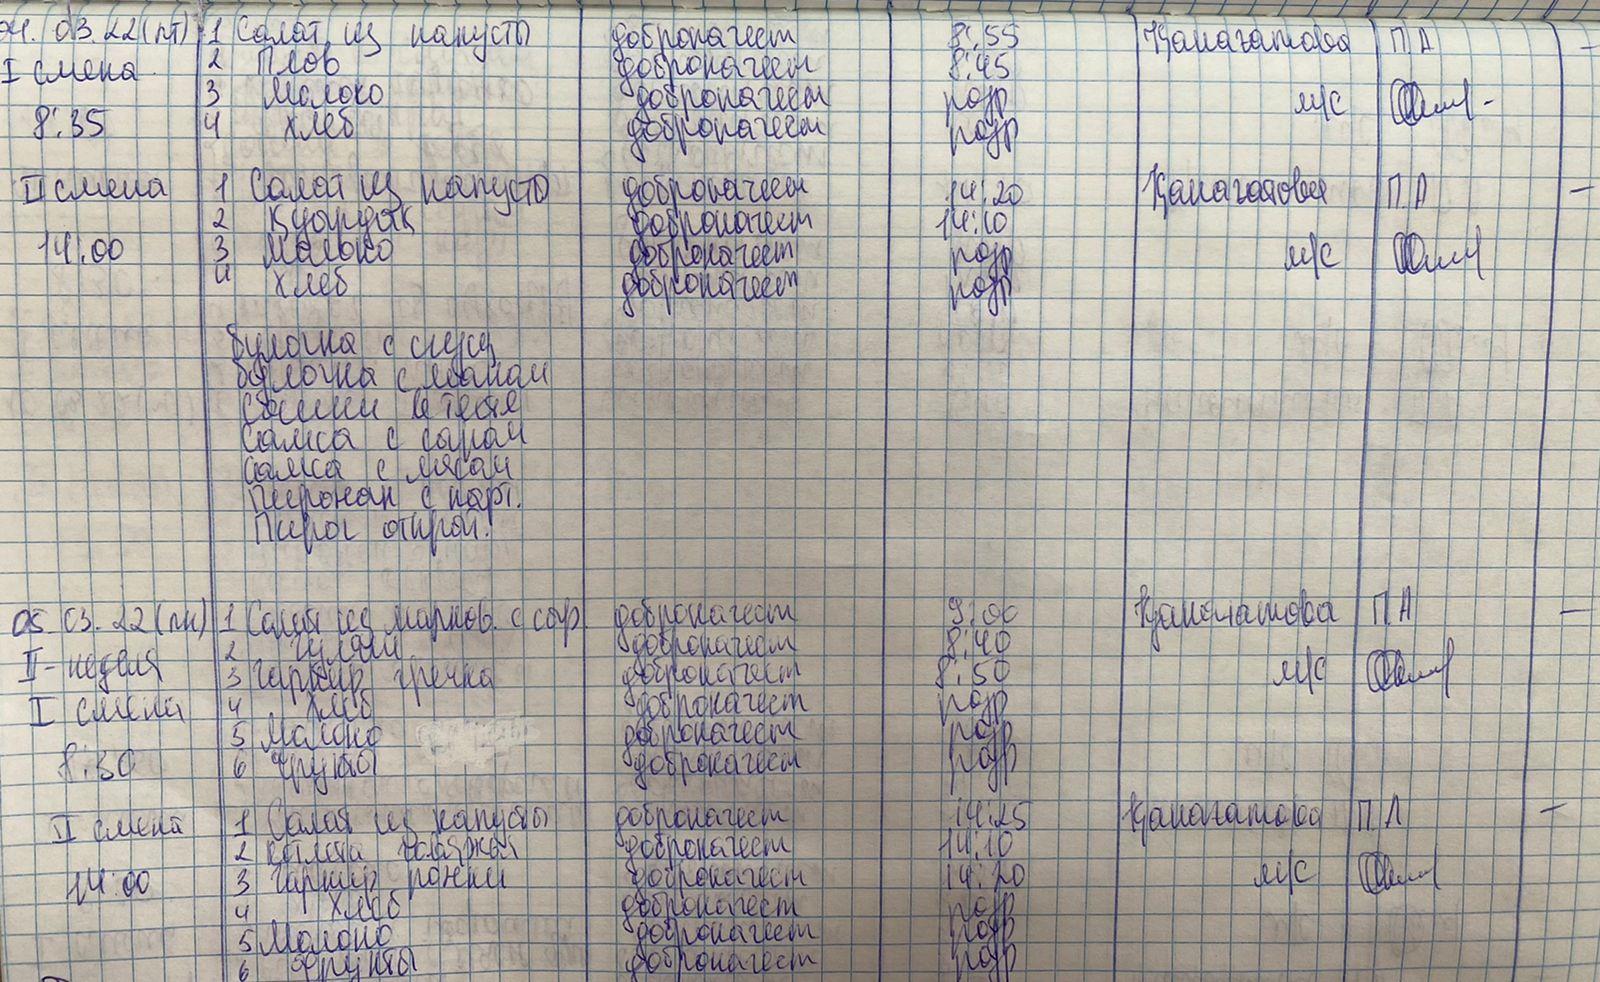 04. 03.22(пт) 1 Салат из капусты доброкачест 8:55 Канагатова П А -
I смена 2 Плов доброкачест 8:45
3 Молоко доброкачест разр м/с
8:35 4 хлеб доброкачест разр
II смена 1 Салат из капусто доброкачест 14:20 Канагатовая П.А -
2 Куурдак доброкачест 14:10
14:00 3 Молоко доброкачест разр м/с
4 хлеб доброкачест разр
булочка с
булочка с маком
в тесте
Самса с сыром
самса с мясом
Пирожок с карт.
Пирог открой.
05.03.22(пн) 1 Салат из морков. с сыр. доброкачест 9:00 Канагатова П А -
II - неделя 2 гуляш доброкачест 8:40
3 гарнир гречка доброкачест 8:50 м/с
I смена 4 хлеб доброкачест разр
5 Молоко доброкачест разр
8:30 6 фрукты доброкачест разр
II смена 1 Салат из капусты доброкачест 14:25 Канагатова П.А -
2 котлета доброкачест 14:10
14:00 3 гарнир рожки доброкачест 14:20 м/с
4 хлеб доброкачест разр
5 Молоко доброкачест разр
6 фрукты доброкачест разр